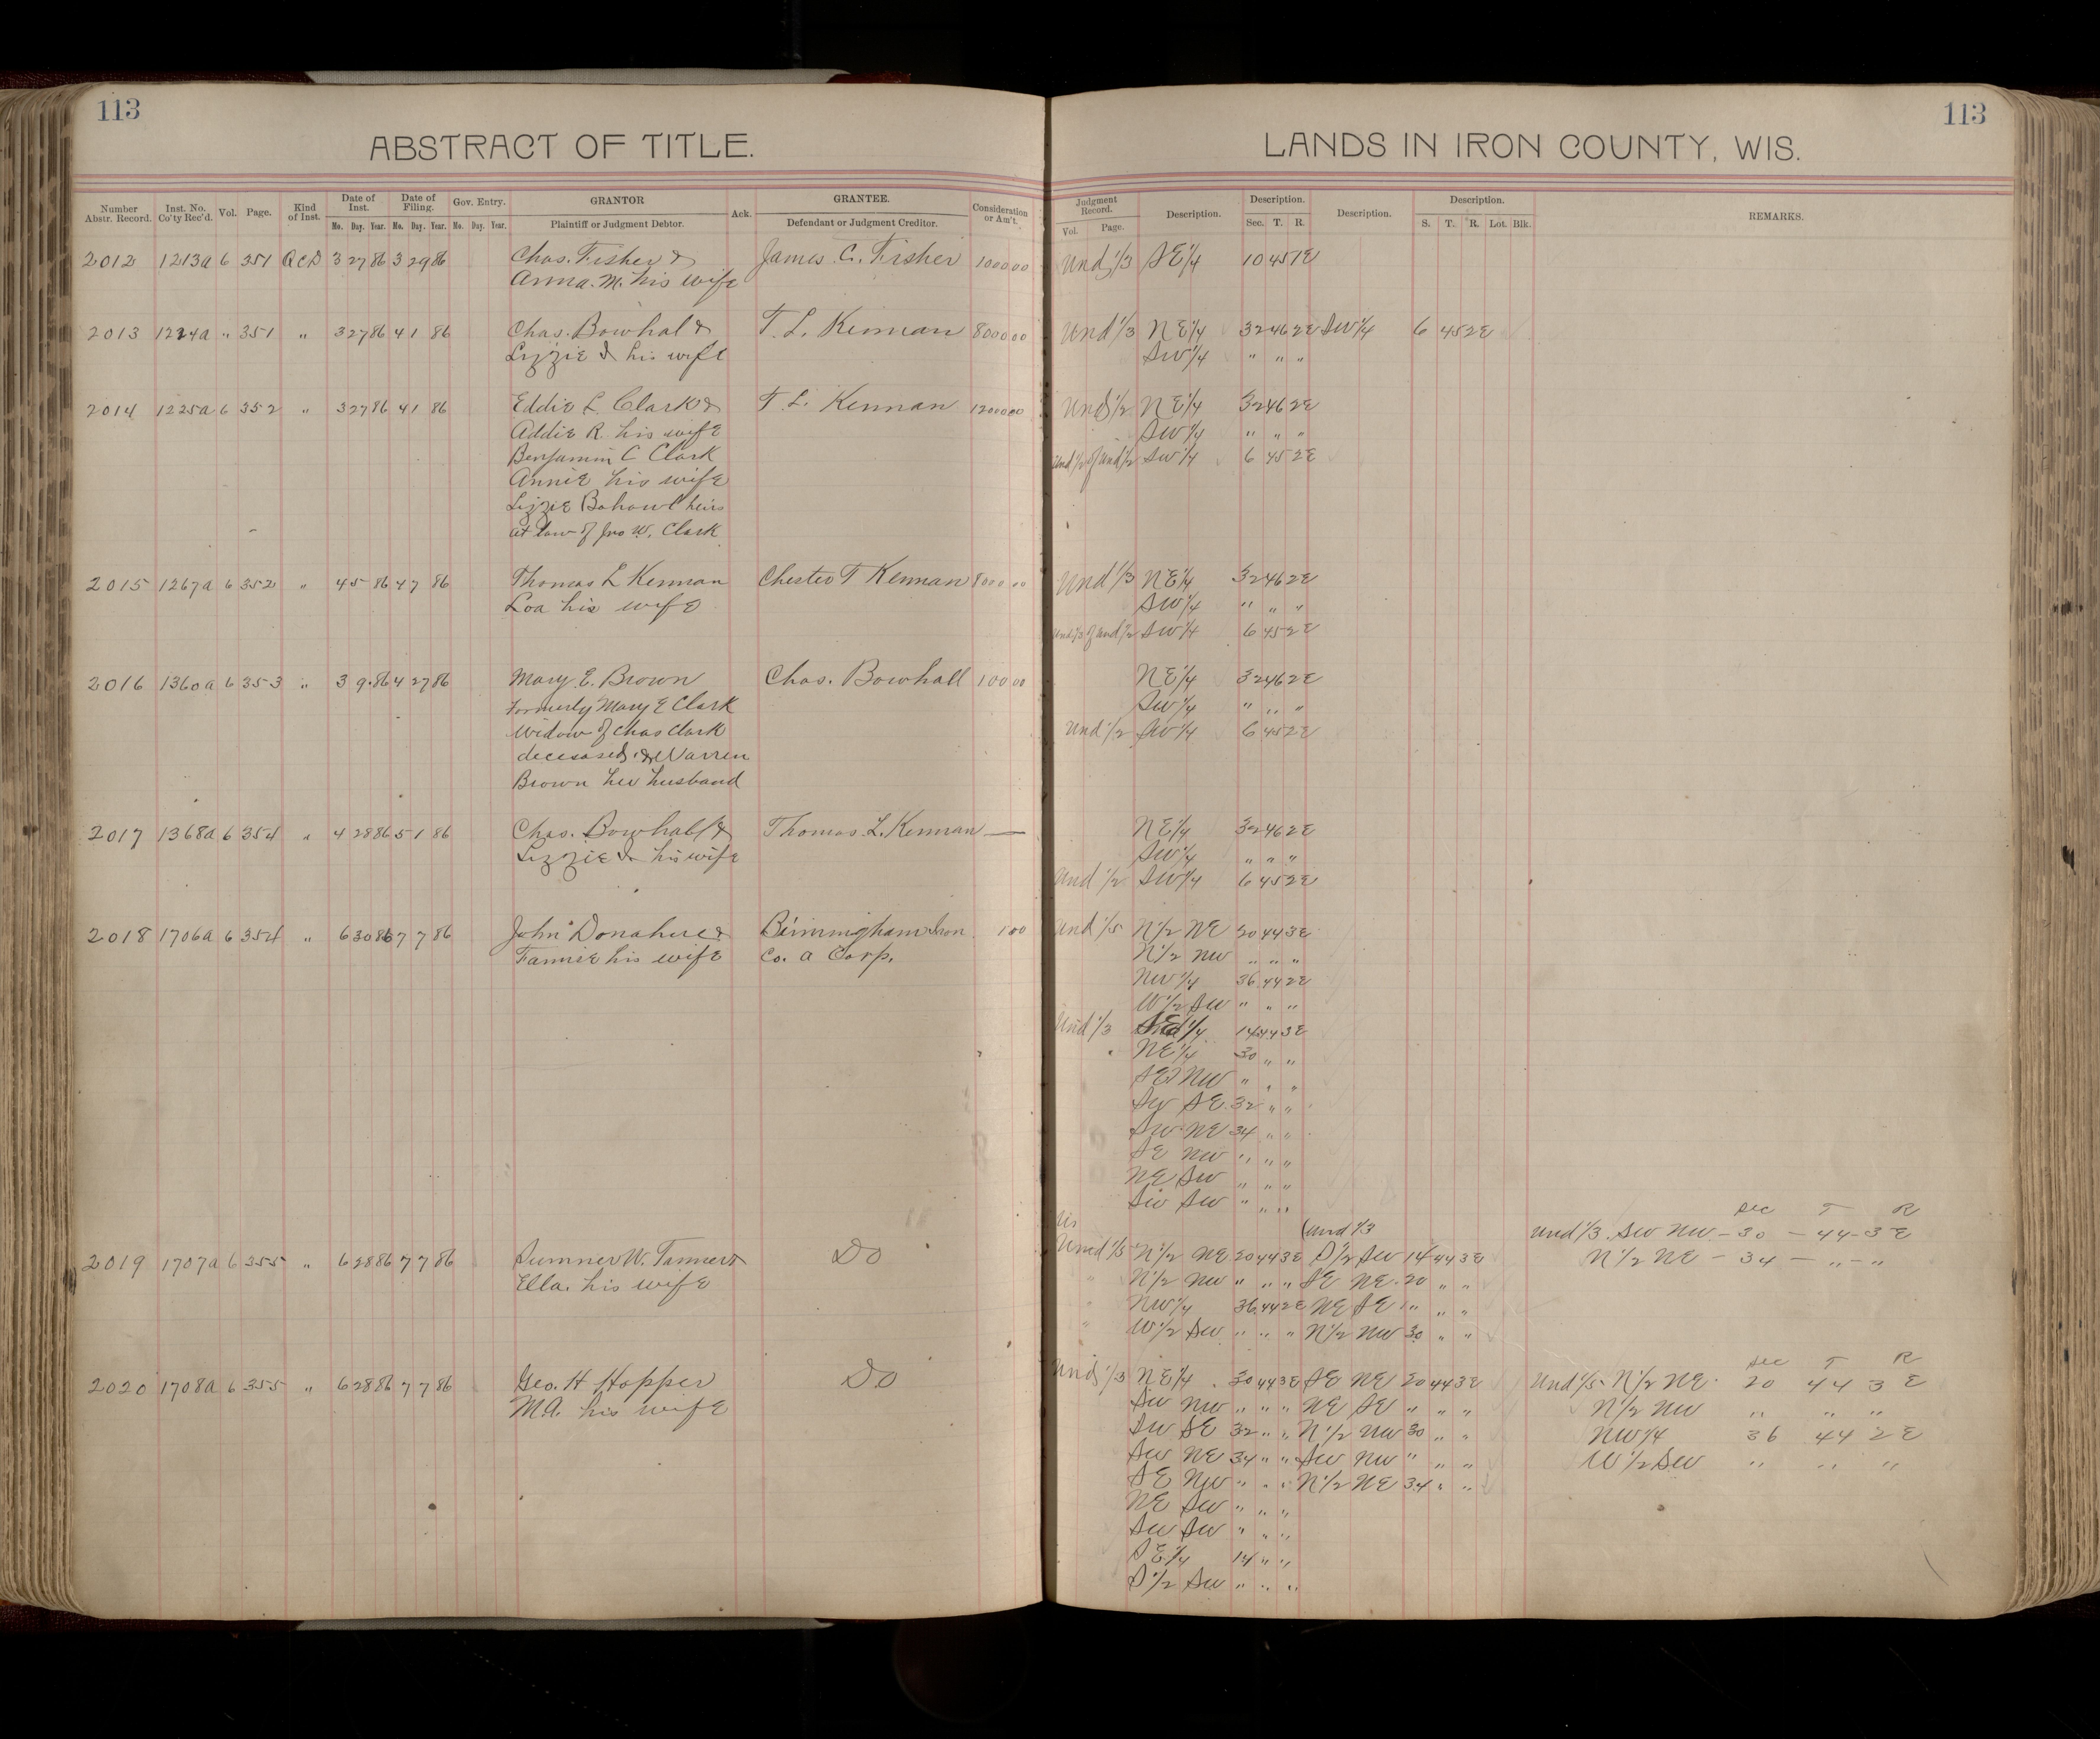 113
ABSTRACT OF TITLE.
Number Abstr. Record. Inst. No. Co'ty Rec'd. Vol. Page. Kind of Inst. Date of Inst. Date of Filing. Gov. Entry. GRANTOR Ack. GRANTEE. Consideration or Am't.
Mo. Day. Year. Mo. Day. Year. Mo. Day. Year. Plaintiff or Judgment Debtor. Defendant or Judgment Creditor.
2012 1213a 6 351 QCD 3 27 86 3 29 86 Chas. Fisher & James C. Fisher 1000 00
Anna. M. his wife
2013 1224a " 351 " 3 27 86 4 1 86 Chas. Bowhal & T. L. Kennan 8000 00
Lizzie I his wife
2014 1225a 6 352 " 3 27 86 4 1 86 Eddie L. Clark & T. L. Kennan 12000 00
Addie R. his wife
Benjamin C Clark
Annie his wife
Lizzie Bohowl heirs
at law of Jno W. Clark
2015 1267a 6 352 " 4 5 86 4 7 86 Thomas L Kennan Chester T Kennan 8000 00
Loa his wife
2016 1360a 6 353 " 3 9 86 4 27 86 Mary E. Brown Chas. Bowhall 100 00
formerly Mary E Clark
widow of Chas Clark
deceased & Warren
Brown her husband
2017 1368a 6 354 " 4 28 86 5 1 86 Chas. Bowhall & Thomas L. Kennan —
Lizzie I. his wife
2018 1706a 6 354 " 6 30 86 7 7 86 John Donahue & Birmingham Iron 1 00
Fannie his wife Co. a Corp.
2019 1707a 6 355 " 6 28 86 7 7 86 Sumner W. Tanner & Do
Ella. his wife
2020 1708a 6 355 " 6 28 86 7 7 86 Geo. H Hopper Do
M.A. his wife
113
LANDS IN IRON COUNTY, WIS.
Judgment Record. Description. Description. Description. Description. REMARKS.
Vol. Page. Sec. T. R. S. T. R. Lot. Blk.
Und 1/3 SE 1/4 10 45 1E
Und 1/3 NE 1/4 32 46 2E SW 1/4 6 45 2E
SW 1/4 " " "
Und 1/2 NE 1/4 32 46 2E
SW 1/4 " " "
Und 1/2 of und 1/2 SW 1/4 6 45 2E
Und 1/3 NE 1/4 32 46 2E
SW 1/4 " " "
Und 1/3 of und 1/2 SW 1/4 6 45 2E
NE 1/4 32 46 2E
SW 1/4 " " "
Und 1/2 SW 1/4 6 45 2E
NE 1/4 32 46 2E
SW 1/4 " " "
Und 1/2 SW 1/4 6 45 2E
Und 1/5 N 1/2 NE 20 44 3E
N 1/2 NW " " "
NW 1/4 36 44 2E
W 1/2 SW " " "
Und 1/3 SE 1/4 14 44 3E
NE 1/4 30 " "
SE NW " " "
SW SE 32 " "
SW NE 34 " "
SE NW " " "
NE SW " " "
SW SW " " "
(Und 1/3 Sec T R
Und 1/3 SW NW - 30 - 44 - 3E
Und 1/5 N 1/2 NE 20 44 3E S 1/2 SW 14 44 3E N 1/2 NE - 34 - " - "
" N 1/2 NW " " " SE NE 20 " "
NW 1/4 36 44 2E NE SE " " "
" W 1/2 SW " " " N 1/2 NW 30 " "
Sec T R
Und 1/3 NE 1/4 30 44 3E SE NE 20 44 3E Und 1/5 N 1/2 NE 20 44 3 E
SW NW " " " NE SE " " " N 1/2 NW " " "
SW SE 32 " " N 1/2 NW 30 " " NW 1/4 36 44 2 E
SW NE 34 " " SW NW " " " W 1/2 SW " " "
SE NW " " " N 1/2 NE 34 " "
NE SW " " "
SW SW " " "
SE 1/4 14 " "
S 1/2 SW " " "